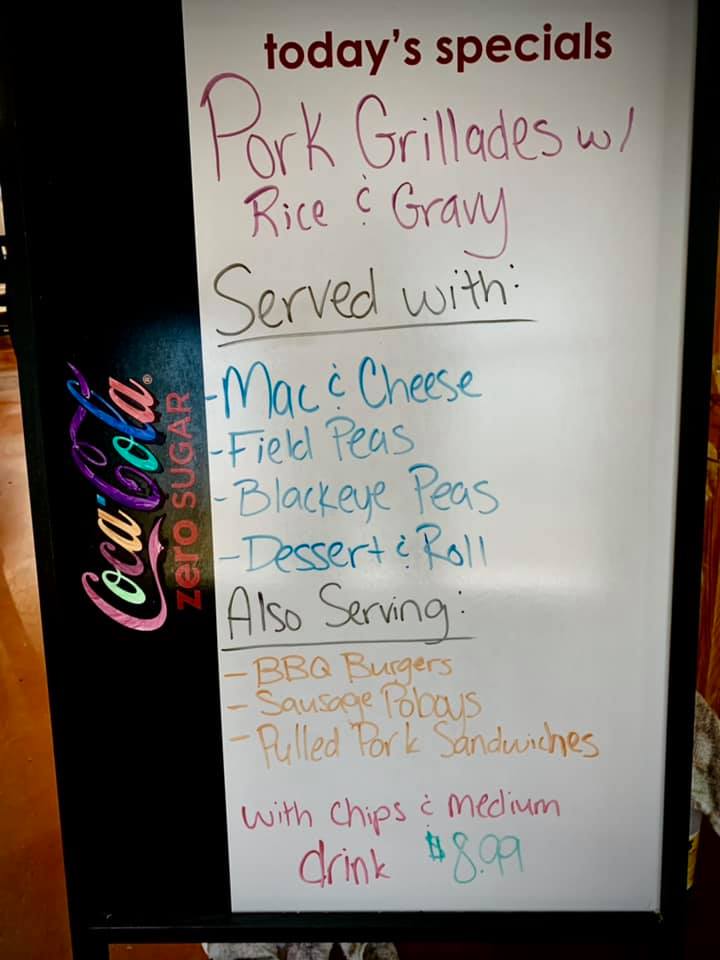 today's specials
Pork Grillades w/
Rice & Gravy
Served with:
-Mac & Cheese
-Field Peas
-Blackeye Peas
-Dessert & Roll
Also Serving:
- BBQ Burgers
- Sausage Poboys
- Pulled Pork Sandwiches
with chips & medium
drink $8.99
Coca-Cola®
zero SUGAR